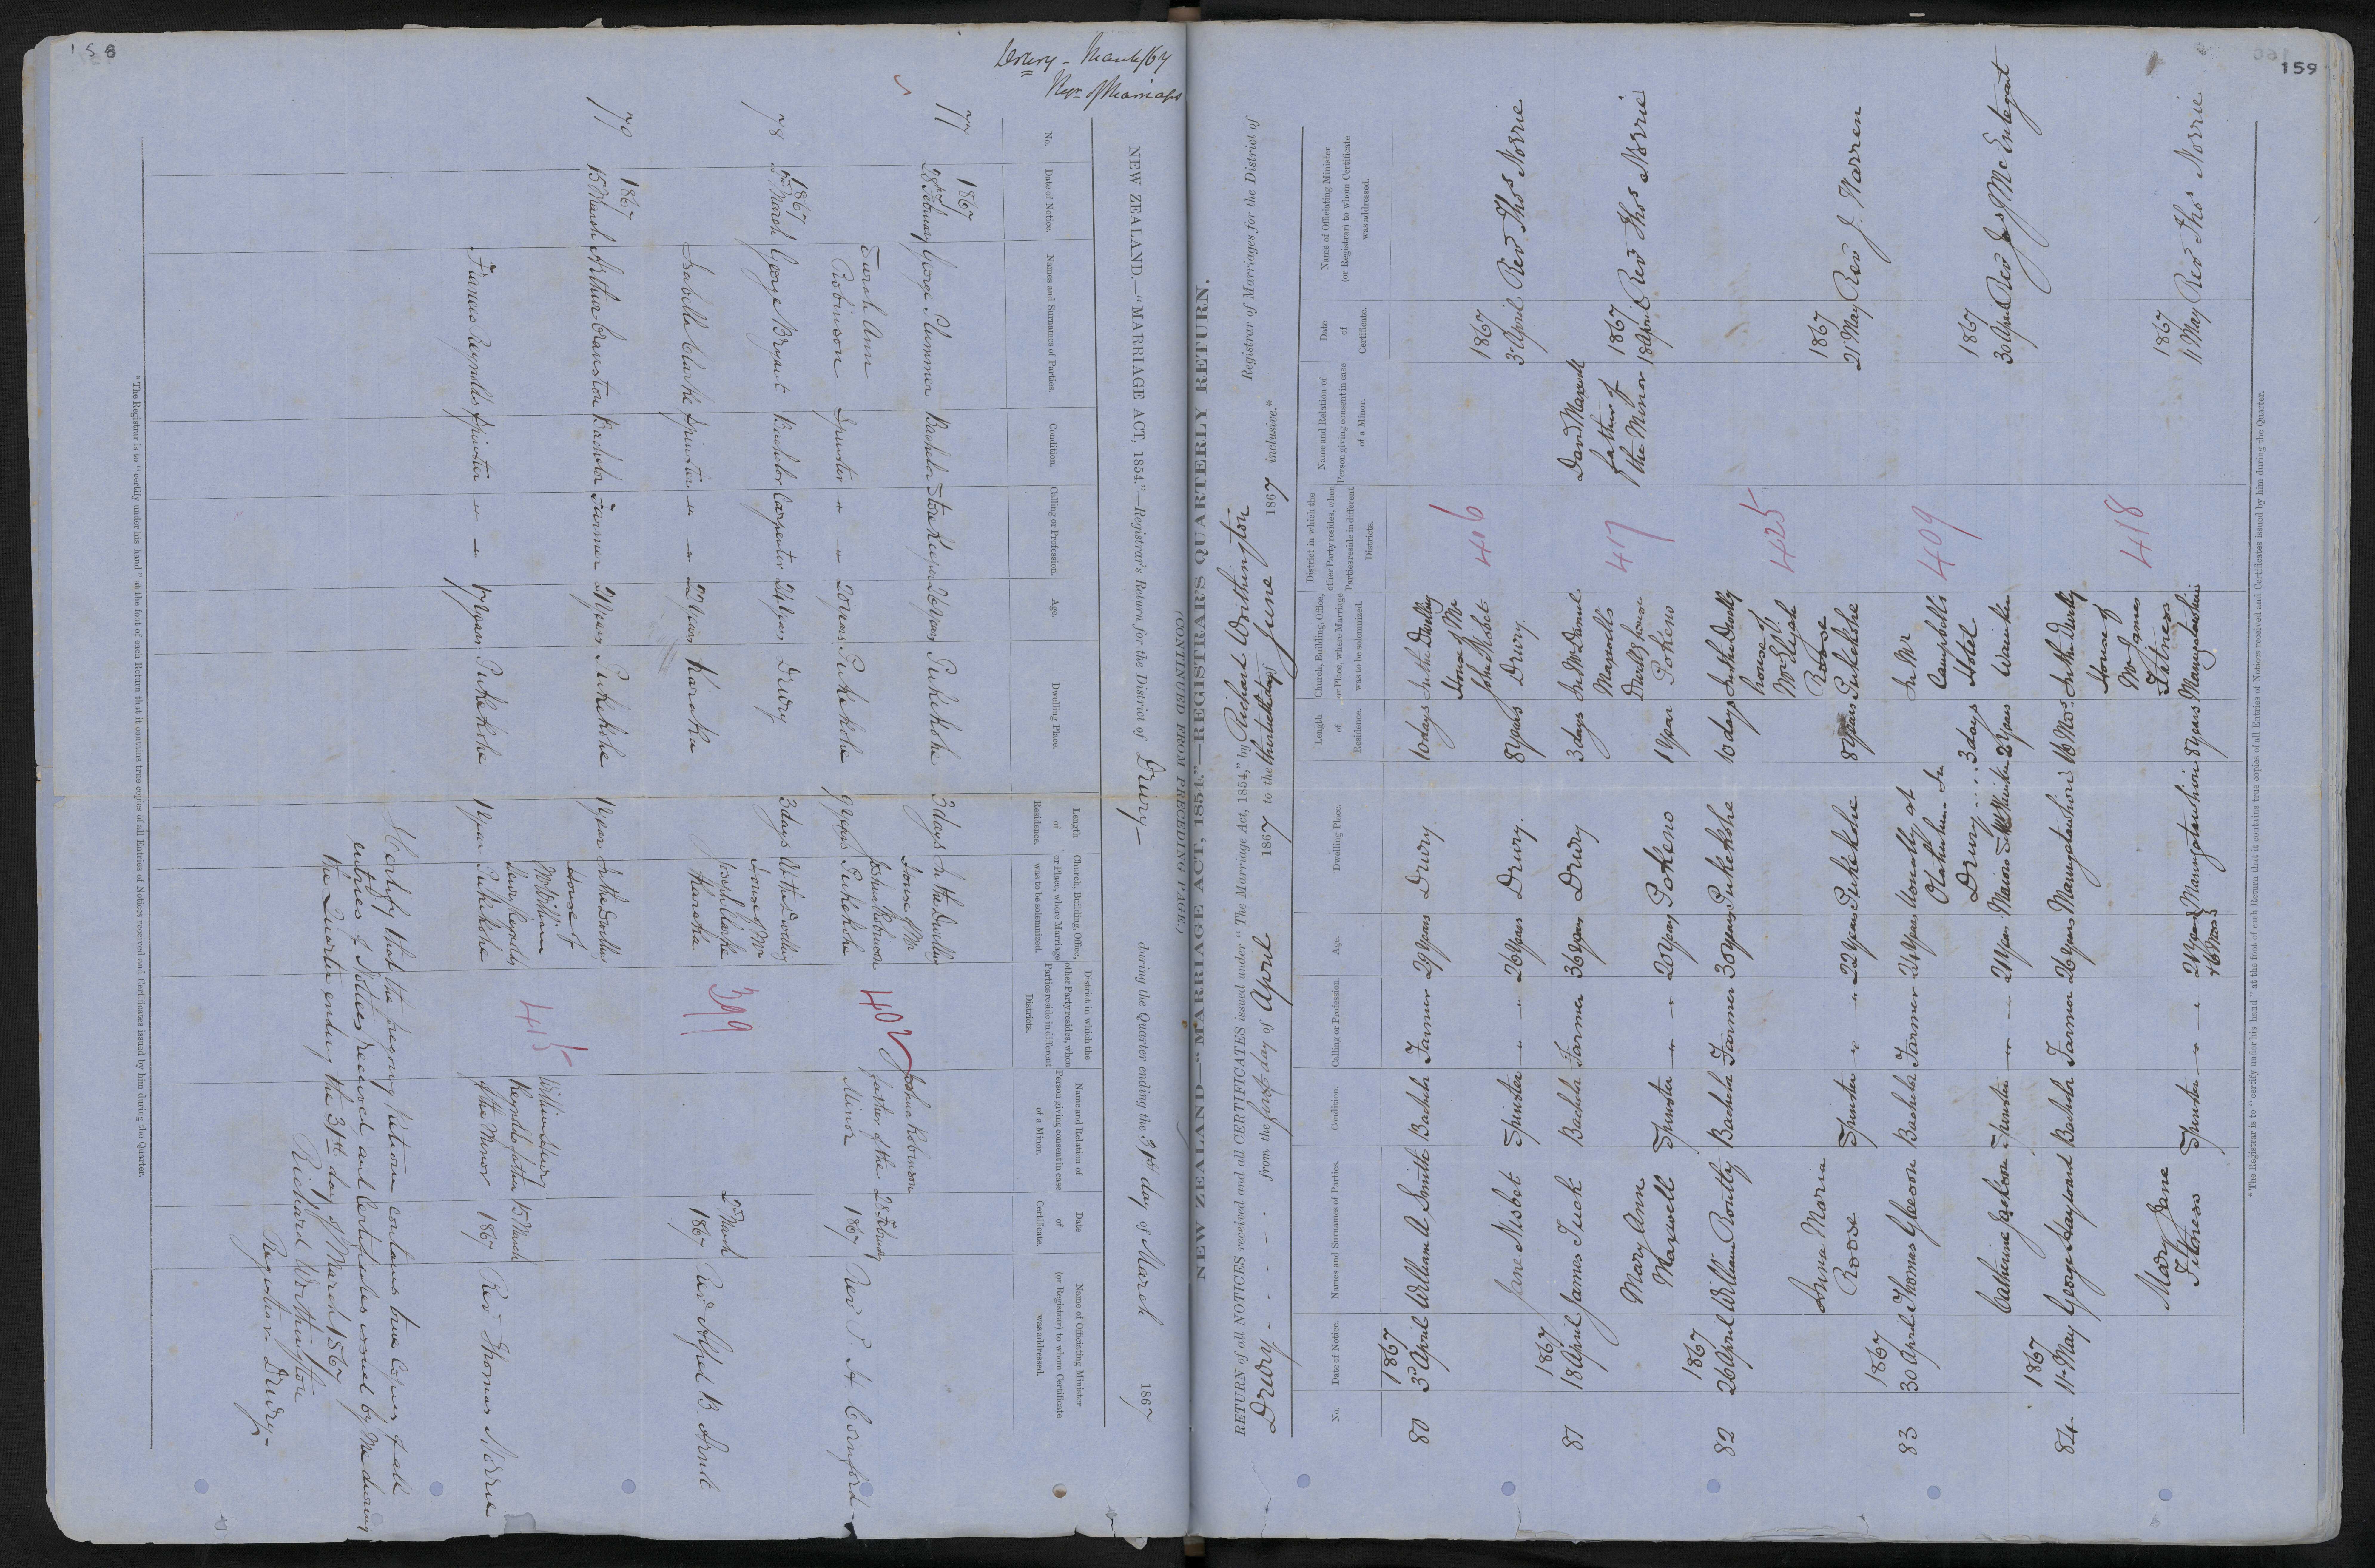 158
Drury - March/67
Regr. of Marriages
NEW ZEALAND.—"MARRIAGE ACT, 1854."—Registrar's Return for the District of Drury— during the Quarter ending the 31st day of March 1867
No.
Date of Notice.
Names and Surnames of Parties.
Condition.
Calling or Profession.
Age.
Dwelling Place.
Length of Residence.
Church, Building, Office, or Place, where Marriage was to be solemnized.
District in which the other Party resides, when Parties reside in different Districts.
Name and Relation of Person giving consent in case of a Minor.
Date of Certificate.
Name of Officiating Minister (or Registrar) to whom Certificate was addressed.
77 1867 28th February George Plummer Bachelor Storekeeper 26 Years Pukekohe 3 days In the Dwelling House of Mr Joshua Robinson Pukekohe
Sarah Ann Robinson Spinster " — 20 Years Pukekohe 9 Years 402 Joshua Robinson father of the Minor 28 February 1867 Rev
78 1867 2nd March George Bryant Bachelor Carpenter 24 Years Drury 3 days At the Dwelling House of Mr Clarke Karaka
Isabella Clarke Spinster — — 22 Years Karaka 399 2nd March 1867 Rev
79 1867 15 March Arthur Cranston Bachelor Farmer 21 Years Pukekohe 1 Year In the Dwelling House of Mr William Henry Reynolds Pukekohe
Frances Reynolds Spinster — — 17 Years Pukekohe 1 Year 415 William Henry Reynolds father of the Minor 15 March 1867 Rev Thomas Norrie
I Certify that the foregoing Return contains true Copies of all
entries of Notices received and Certificates issued by Me during
the Quarter ending the 31st day of March 1867
Richard Worthington
Registrar Drury—
*The Registrar is to "certify under his hand" at the foot of each Return that it contains true copies of all Entries of Notices received and Certificates issued by him during the Quarter.
159
(CONTINUED FROM PRECEDING PAGE.)
NEW ZEALAND—"MARRIAGE ACT, 1854."—REGISTRAR'S QUARTERLY RETURN.
RETURN of all NOTICES received and all CERTIFICATES issued under "The Marriage Act, 1854," by Richard Worthington Registrar of Marriages for the District of
Drury - - - - from the first day of April 1867 to the thirtieth day of June 1867 inclusive.*
No.
Date of Notice.
Names and Surnames of Parties.
Condition.
Calling or Profession.
Age.
Dwelling Place.
Length of Residence.
Church, Building, Office, or Place, where Marriage was to be solemnized.
District in which the other Party resides, when Parties reside in different Districts.
Name and Relation of Person giving consent in case of a Minor.
Date of Certificate.
Name of Officiating Minister (or Registrar) to whom Certificate was addressed.
80 1867 3d April William A Smith Bachelor Farmer 29 Years Drury 10 days In the Dwelling House of Mr John Nisbet Drury
Jane Nisbet Spinster " " 26 Years Drury. 8 years 416 1867 3d April Rev Thos Norrie
81 1867 18 April James Tuck Bachelor Farmer 36 Years Drury 3 days In Mr Daniel Maxwells Dwelling house Pokeno
Mary Ann Maxwell Spinster " — " 20 Years Pokeno 1 Year 417 David Maxwell father of the Minor 1867 18 April Rev Thos Norrie
82 1867 26 April William Routly Bachelor Farmer 30 Years Pukekohe 10 days In the Dwelling house of Mr Elijah Roose Pukekohe
Anna Maria Roose Spinster " — " 22 Years Pukekohe 8 Years 425 1867 21 May Rev J. Warren
83 1867 30 April Thomas Gleeson Bachelor Farmer 24 Years Usually at Otahuhu In Drury .... 3 days In Mr Campbells Hotel Wairoa
Catherine Jackson Spinster " — — 21 Years 2 Years 409 1867 30 April Rev Jas McEntegart
84 1867 11th May George Hayford Bachelor Farmer 26 Years Maungatawhiri 10 Mos. In the Dwelling House of Mr James Fitness Maungatawhiri
Mary Jane Fitness Spinster 21 Years Maungatawhiri 8 years 418 1867 11 May Rev Thos Norrie
*The Registrar is to "certify under his hand" at the foot of each Return that it contains true copies of all Entries of Notices received and Certificates issued by him during the Quarter.